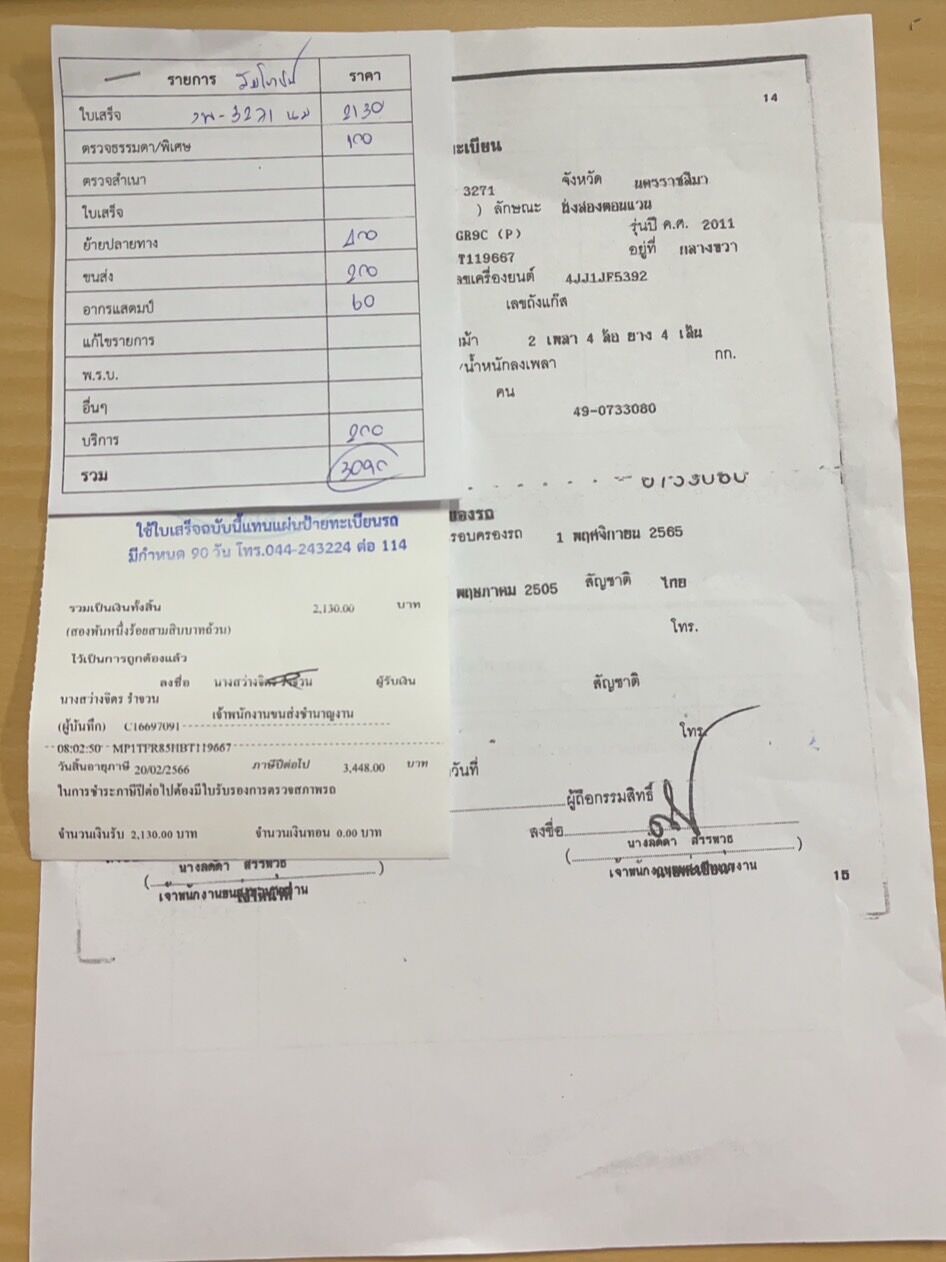 รายการ ราคา
ใบเสร็จ 3271 นม 2130
ตรวจธรรมดา/พิเศษ 100
ตรวจสำเนา
ใบเสร็จ
ย้ายปลายทาง 400
ขนส่ง 200
อากรแสตมป์ 60
แก้ไขรายการ
พ.ร.บ.
อื่นๆ
บริการ 200
รวม 3090
ใช้ใบเสร็จฉบับนี้แทนแผ่นป้ายทะเบียนรถ
มีกำหนด 90 วัน โทร.044-243224 ต่อ 114
รวมเป็นเงินทั้งสิ้น 2,130.00 บาท
(สองพันหนึ่งร้อยสามสิบบาทถ้วน)
ไว้เป็นการถูกต้องแล้ว
ลงชื่อ นางสว่างจิตร รำจวน ผู้รับเงิน
นางสว่างจิตร รำจวน
เจ้าพนักงานขนส่งชำนาญงาน
(ผู้บันทึก) C16697091
08:02:50 MP1TFR85HBT119667
วันสิ้นอายุภาษี 20/02/2566 ภาษีปีต่อไป 3,448.00 บาท
ในการชำระภาษีปีต่อไปต้องมีใบรับรองการตรวจสภาพรถ
จำนวนเงินรับ 2,130.00 บาท จำนวนเงินทอน 0.00 บาท
14
ทะเบียน
3271 จังหวัด นครราชสีมา
) ลักษณะ นั่งสองตอนแวน
GR9C (P) รุ่นปี ค.ศ. 2011
T119667 อยู่ที่ กลางขวา
เลขเครื่องยนต์ 4JJ1JF5392
เลขถังแก๊ส
2 เพลา 4 ล้อ ยาง 4 เส้น
น้ำหนักลงเพลา กก.
คน
49-0733080
ของรถ
รอบครองรถ 1 พฤศจิกายน 2565
พฤษภาคม 2505 สัญชาติ ไทย
โทร.
สัญชาติ
โทร.
วันที่
ผู้ถือกรรมสิทธิ์
ลงชื่อ
(นางลดดา สรรพวุธ)
เจ้าพนักงาน
15
(นางลดดา สรรพวุธ)
เจ้าพนักงาน